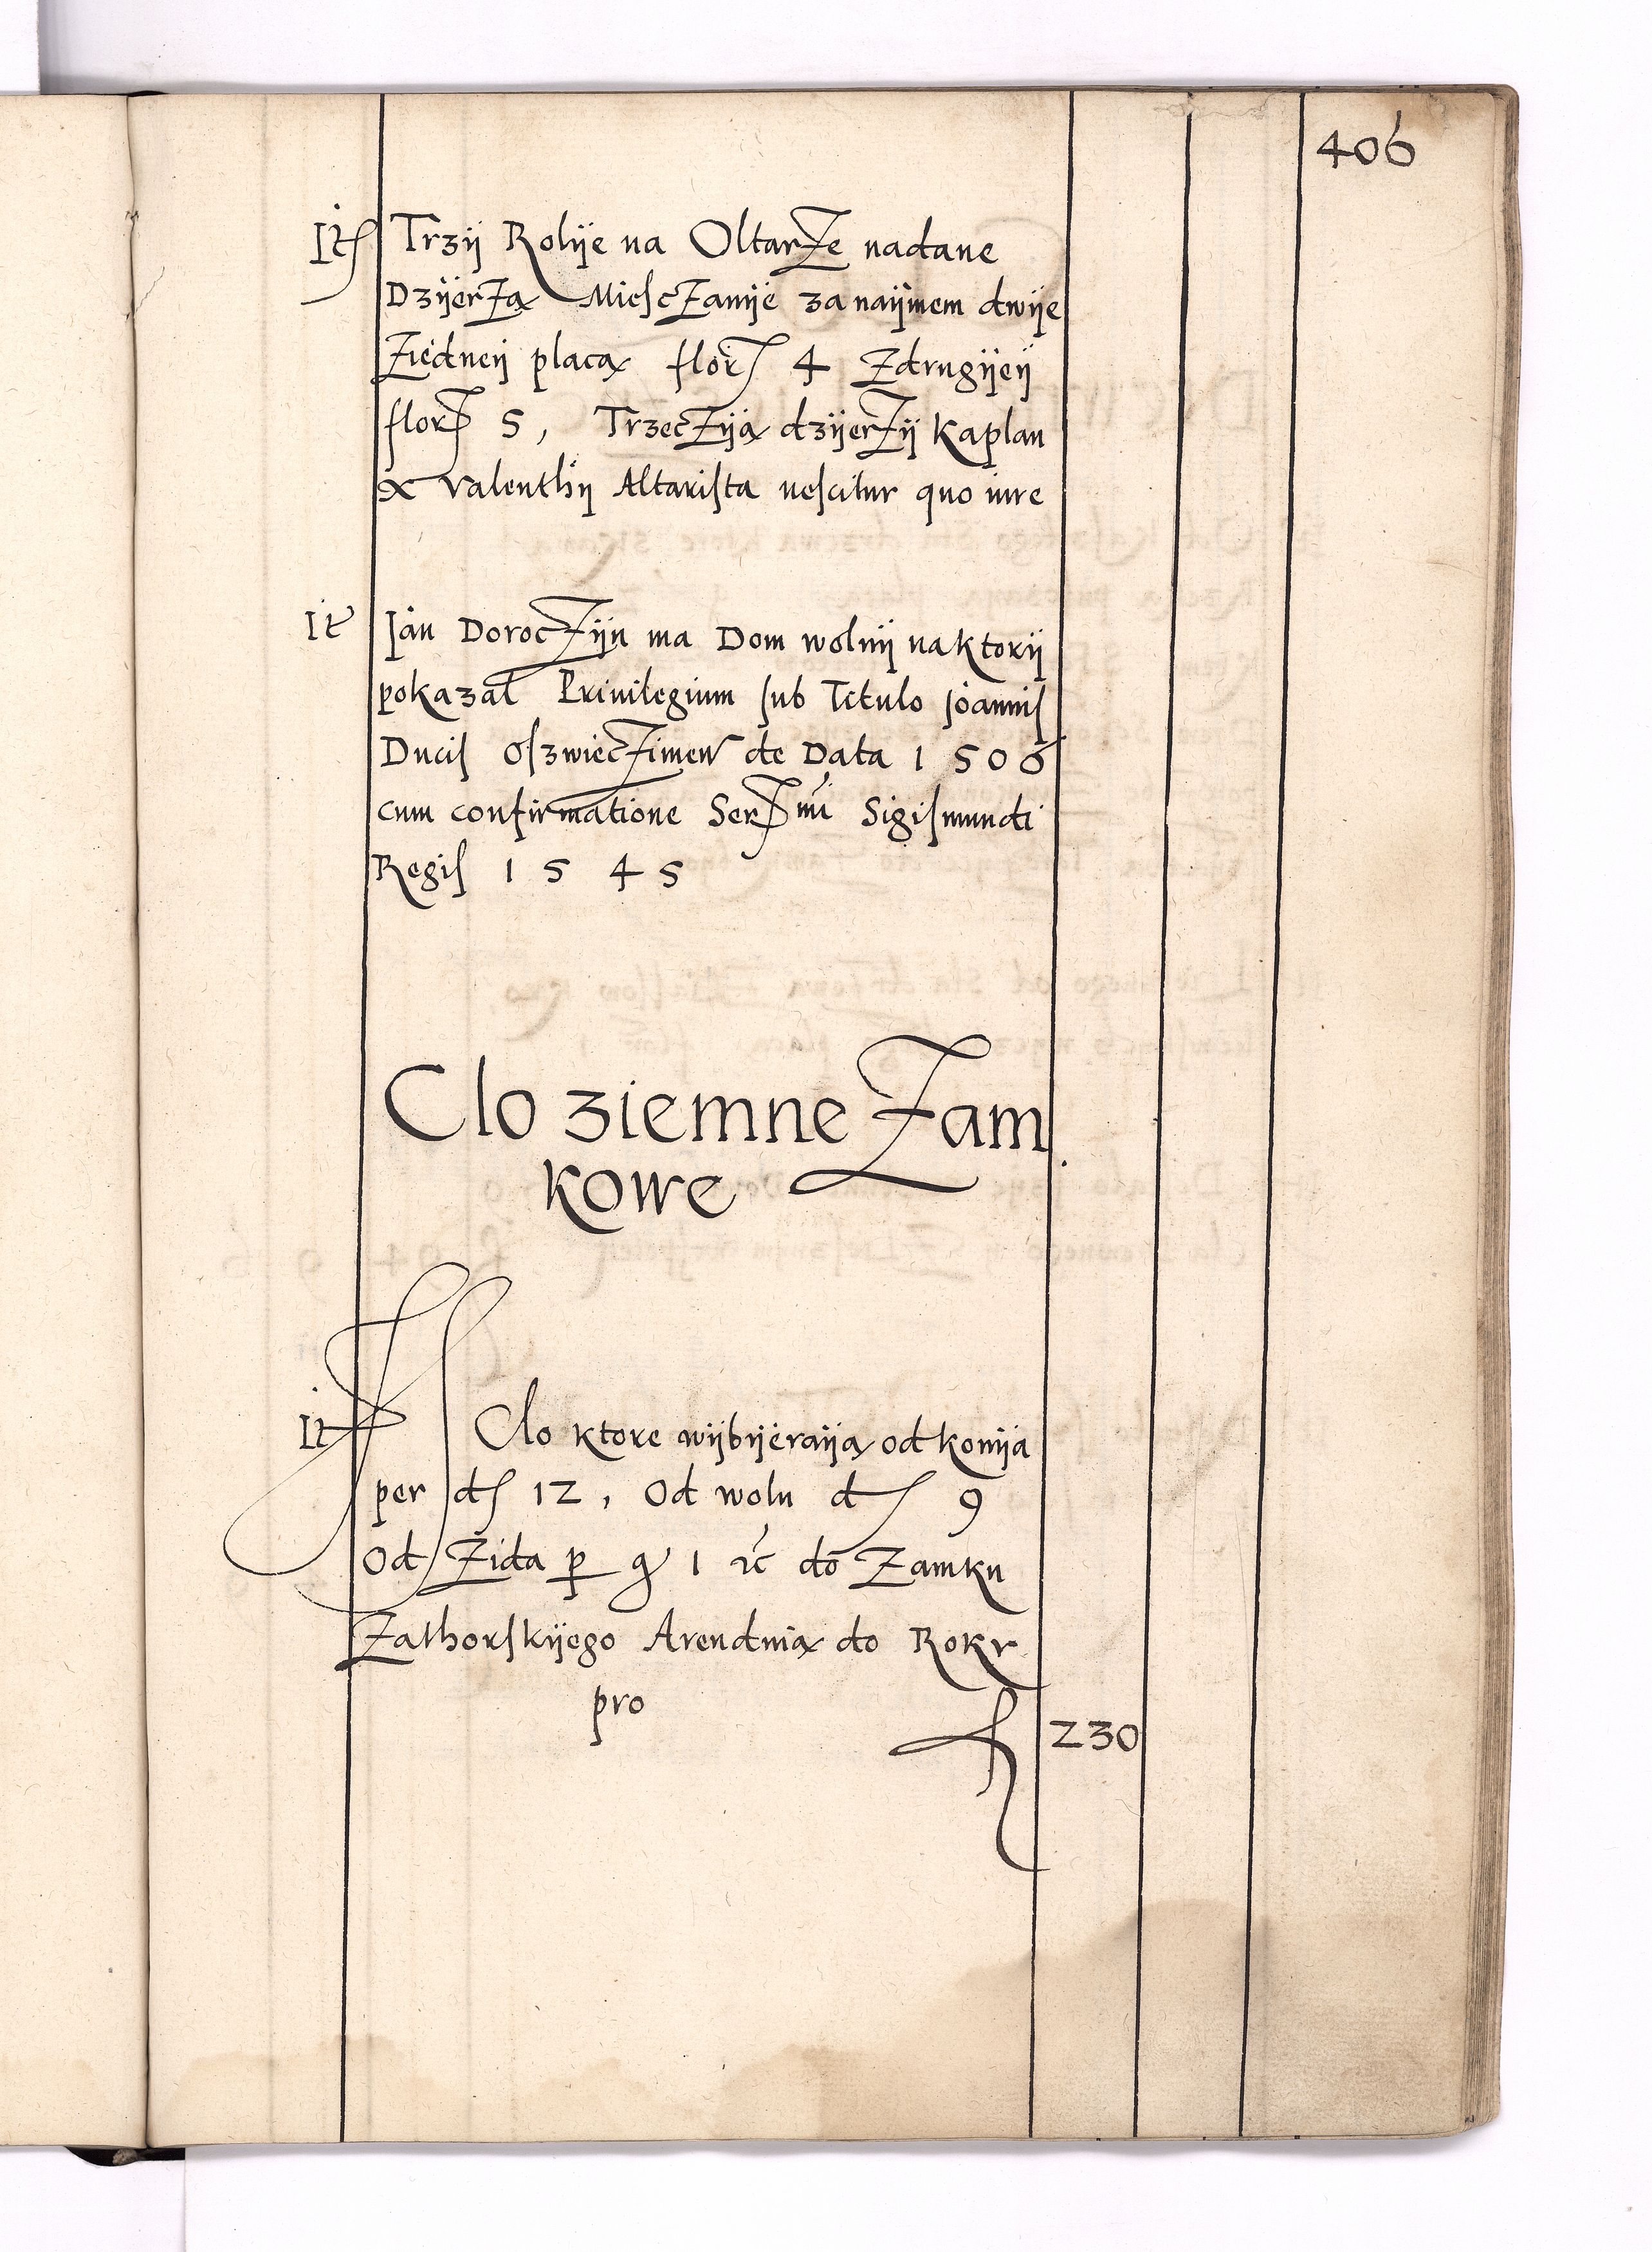 406
It Trzÿ Rolÿe na OltarZe nadane
DzÿerZą MiescZanÿe za naÿmem dwÿe
Ziednеÿ placą flor 4 Zdrugÿeÿ
flor 5, TrzecZÿą dzÿerZÿ kaplan
x valenthÿ Altarista nescitur quo iure
It Jan DorocZÿn ma Dom wolnÿ naktorÿ
pokazal Priuilegium sub Titulo Joannis
Ducis OszwiecZimen de Data 1506
cum confirmatione Sermi Sigismundi
Regis 1545
Clo ziemne Zam
kowe
It Clo ktore wÿbÿeraÿą od konÿa
per d 12, Od wolu d 9
Od Zida p g 1 rc do Zamku
Zathorskÿego Arendnią do Rokv
pro
f 230